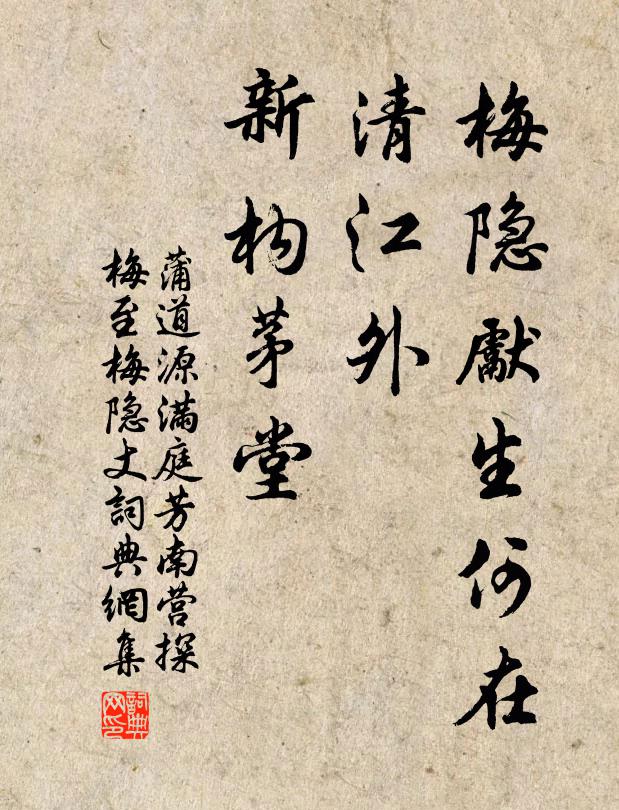 梅隐獻生何在
清江外
新构茅堂
蒲道源满庭芳南营探
梅至梅隐丈詞典網集
詞典网印